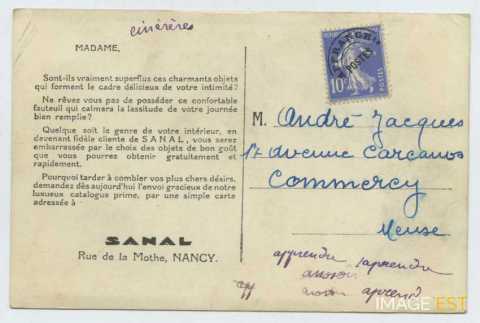 cinéréres
MADAME,
Sont-ils vraiment superflus ces charmants objets
qui forment le cadre délicieux de votre intimité?
Ne rêvez vous pas de posséder ce confortable
fauteuil qui calmera la lassitude de votre journée
bien remplie?
Quelque soit le genre de votre intérieur, en
devenant fidèle cliente de SANAL, vous serez
embarrassée par le choix des objets de bon goût
que vous pourrez obtenir gratuitement et
rapidement.
Pourquoi tarder à combler vos plus chers désirs,
demandez dès aujourd'hui l'envoi gracieux de notre
luxueux catalogue prime, par une simple carte
adressée à
SANAL
Rue de la Mothe, NANCY.
FRANCE
POSTES
10c
POSTES
M. André Jacques
17 avenue Carcanos
Commercy
Meuse
apprendu apprendu
app
apprend
IMAGE'EST